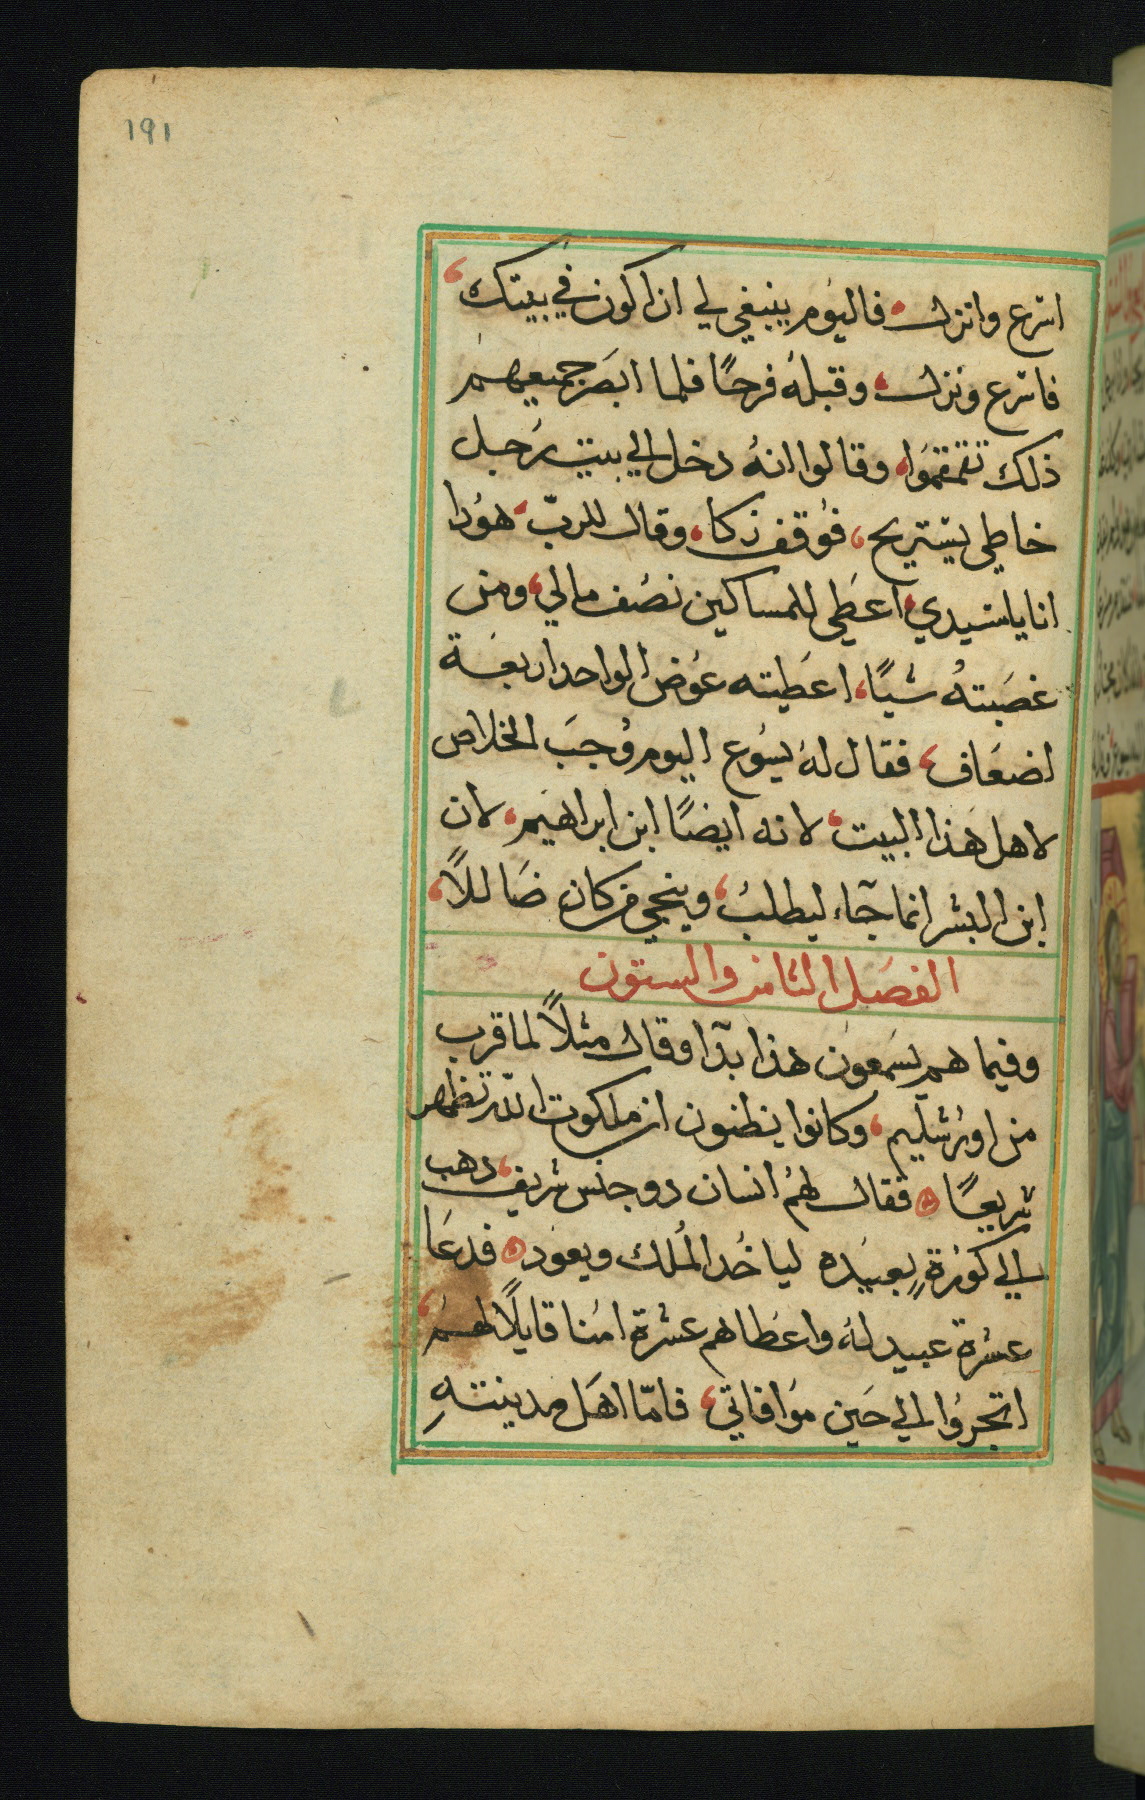 ١٩١
اسرع وانزل فاليوم ينبغي لي ان اكون في بيتك
فاسرع ونزل وقبلهُ فرحًا فلما ابصَر جميعهم
ذلك تقمقموا وقالوا انهُ دخل الي بيت رَجل
خاطي يستريح، فوُقف زكا، وقال للربّ هوُدا
انا ياسيدي اعطي للمساكين نصُف مالي، ومن
غصَبتهُ شيًا، اعطَيته عوُض الواحد اربعَة
اضعَاف، فقال لهُ يسُوع اليوم وُجبَ الخلاص
لاهل هَذا البيت، لانه ايضًا ابن ابراهيم، لان
ابن البشر انما جآء ليطلبُ، وينجي من كان ضَاللاً،
الفصَل الثامن والستون
وفيما هم يسَمعوَن هذا بدَا وقال مثلاً لما قرب
من اوُرُشليم، وكانوا يظنون ان ملكوت الله تظهر
سريعًا فقال لهُم انسان دو جنس شريف، دهب
الي كوُرةٍ بعبيَده لياخُد المُلك ويعوَد فدعَا
عشرة عبيد لهُ واعَطاهم عشرة امُنا قايلًا لهُم،
اتجروُا الي حَين موَافاتي، فامّا اهَل مدينتهِ